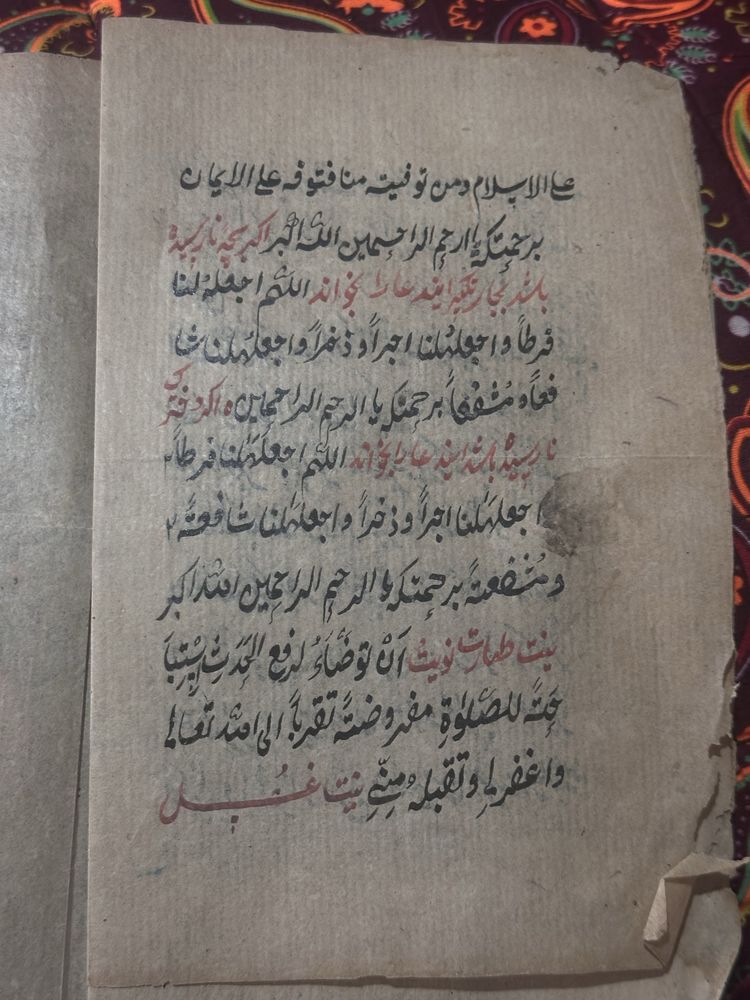 علی الاسلام ومن توفیته منا فتوفه علی الایمان
برحمتک یا ارحم الراحمین اللّٰه اکبر اکر بچه نارسیده
باشد بجار تکبیر ایندعا را بخواند اللّٰهم اجعله لنا
فرطاً واجعلهلنا اجراً وذخراً واجعلهلنا شا
فعاً ومُشفعاً برحمتک یا الرحم الراحمین ه اکر دختری
نارسیده باشد ایندعا را بخواند اللّٰهم اجعلهَالنا فرطاً
اجعلهَالنا اجراً وذخراً واجعلهَالنا شافعتةً
ومُشفعتةً برحمتک یا الرحم الراحِمین اللّٰه اکبر
نیت طهارت نویتُ اَنْ توضَّاءَ لدفع الحَدَثِ اِسْتِبَا
حَةً للصَّلوٰةِ مفروضتةً تقرباً الی اللّٰه تعالیٰ
واغفرلی وتقبلهُ مِنّیِ نیت غُسل